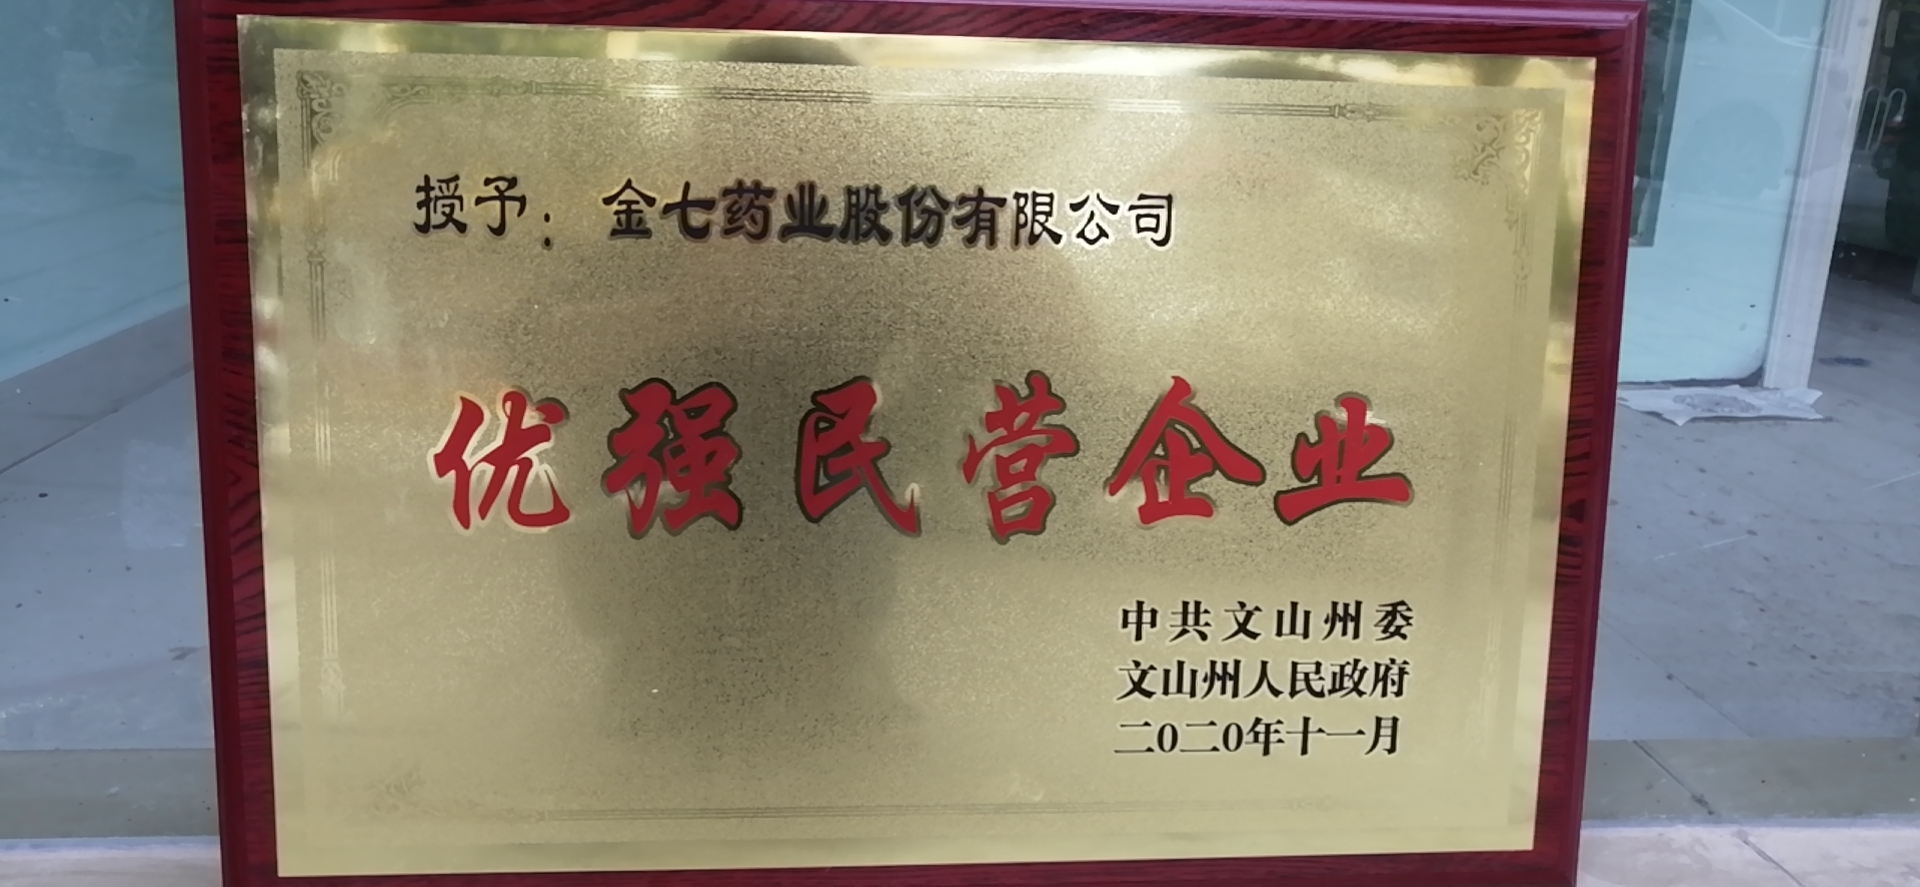 授予：金七药业股份有限公司
优强民营企业
中共文山州委
文山州人民政府
二0二0年十一月